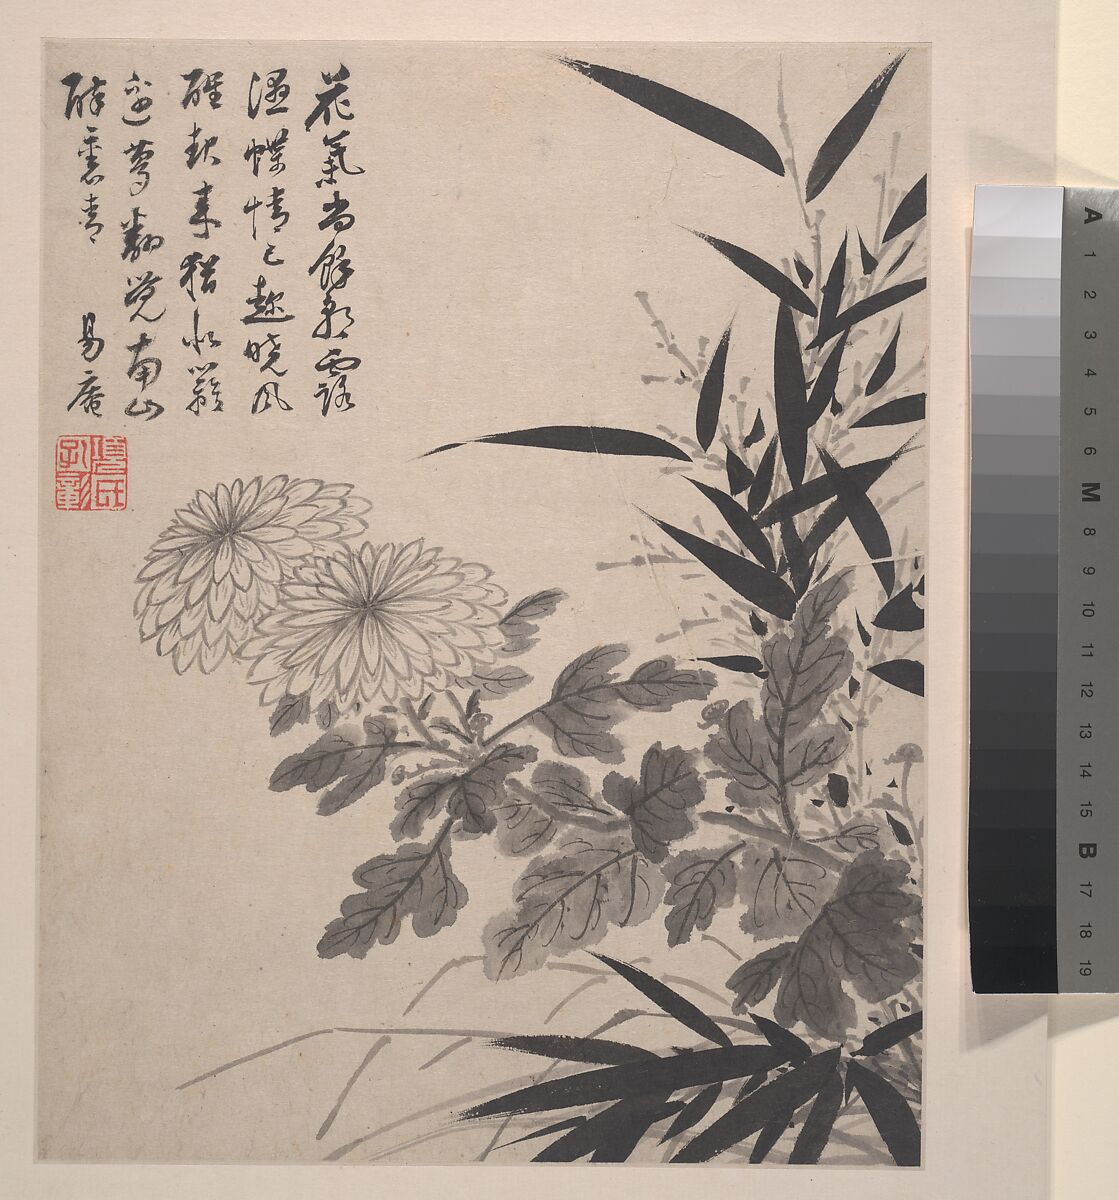 花氣尚餘朝露
濕蝶情已趁曉風
醒起來猶似籬
邊夢翻覺南山
醉裏青 易庵
項氏孔彰
A 1 2 3 4 5 6 M 8 9 10 11 12 13 14 15 B 17 18 19